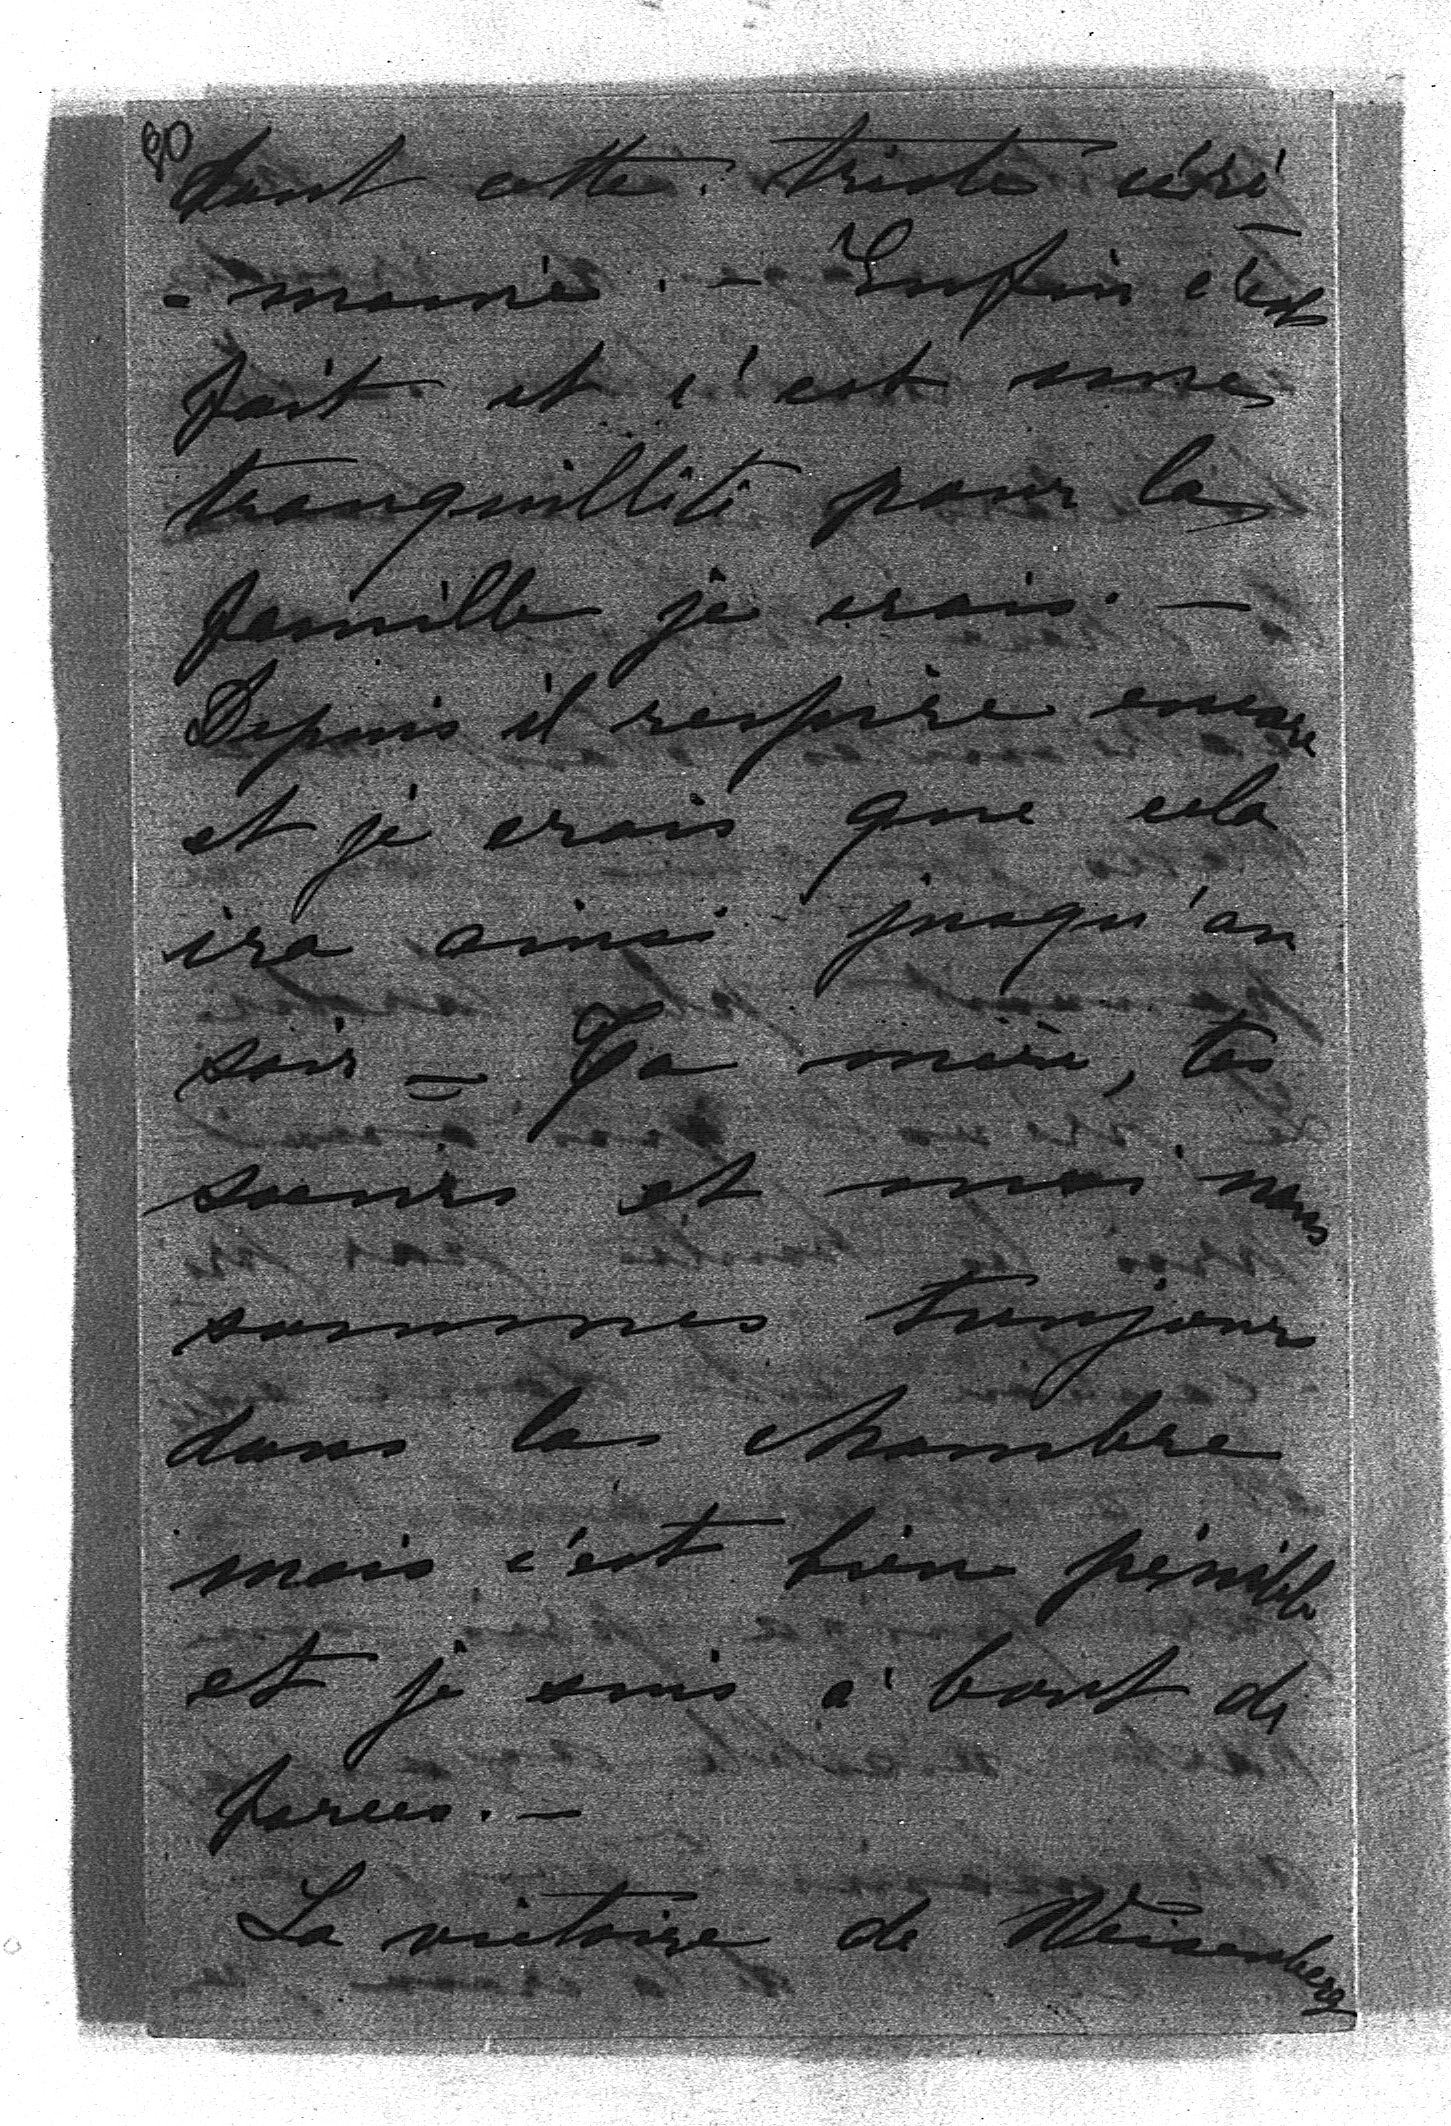 90
dant cette triste céré
- monie. - Enfin c'est
fait et c'est une
tranquillité pour la
famille je crois. -
Depuis il respire encore
et je crois que cela
ira ainsi jusqu'au
soir = Ta mère, tes
soeurs et moi nous
sommes toujours
dans la chambre
mais c'est bien pénible
et je suis à bout de
forces. -
La victoire de Weisenberg